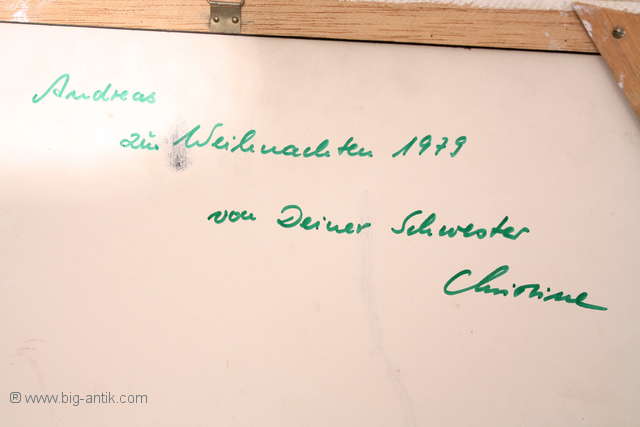 Andreas
zu Weihnachten 1979
von Deiner Schwester
Christine
® www.big-antik.com